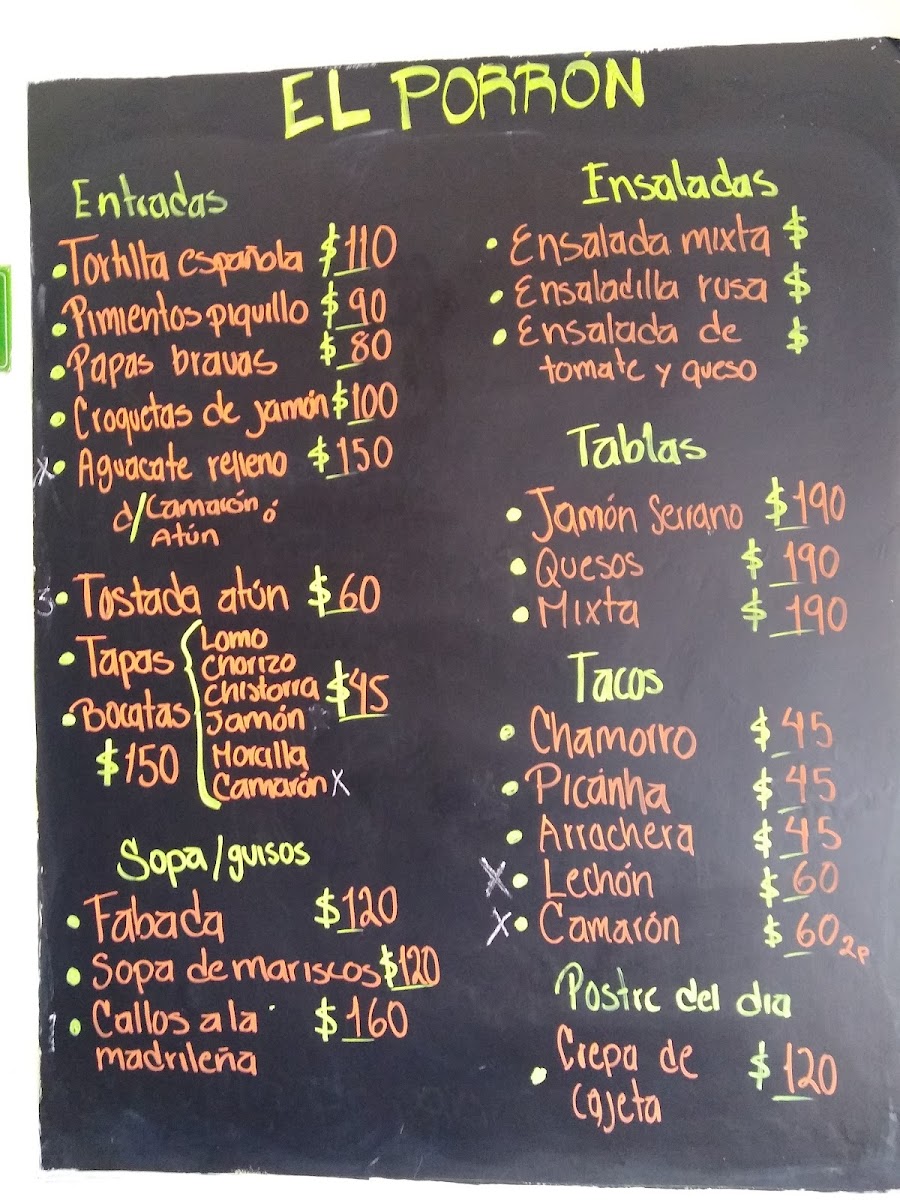 EL PORRÓN
Entradas
• Tortilla española $110
• Pimientos piquillo $90
• Papas bravas $80
• Croquetas de jamón $100
x• Aguacate relleno $150
c/Camarón ó
Atún
• Tostada atún $60
• Tapas
• Bocatas
$150
Lomo
Chorizo
Chistorra $45
Jamón
Morcilla
Camarón X
Sopa/guisos
• Fabada $120
• Sopa de mariscos $120
• Callos a la $160
madrileña
Ensaladas
• Ensalada mixta $
• Ensaladilla rusa $
• Ensalada de $
tomate y queso
Tablas
• Jamón Serrano $190
• Quesos $190
• Mixta $190
Tacos
• Chamorro $45
• Picánha $45
• Arrachera $45
X• Lechón $60
X• Camarón $60 2p
Postre del dia
• Crepa de $120
cajeta